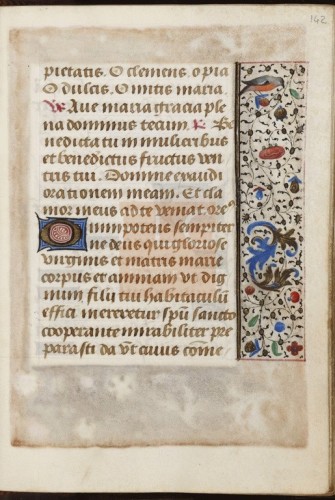 142
pietatis. O clemens. o pia
O dulcis. O mitis maria.
V Aue maria gracia ple
na dominus tecum. R Be
nedicta tu in mulieribus
et benedictus fructus ven
tris tui. Domine exaudi
orationem meam. Et cla
mor meus ad te veniat. ore
Omnipotens sempiter
ne deus qui gloriose
virginis et matris marie
corpus et animam vt dig
num filij tui habitaculū
effici mereretur spū sancto
cooperante mirabiliter pre
parasti da vt cuius com̄e